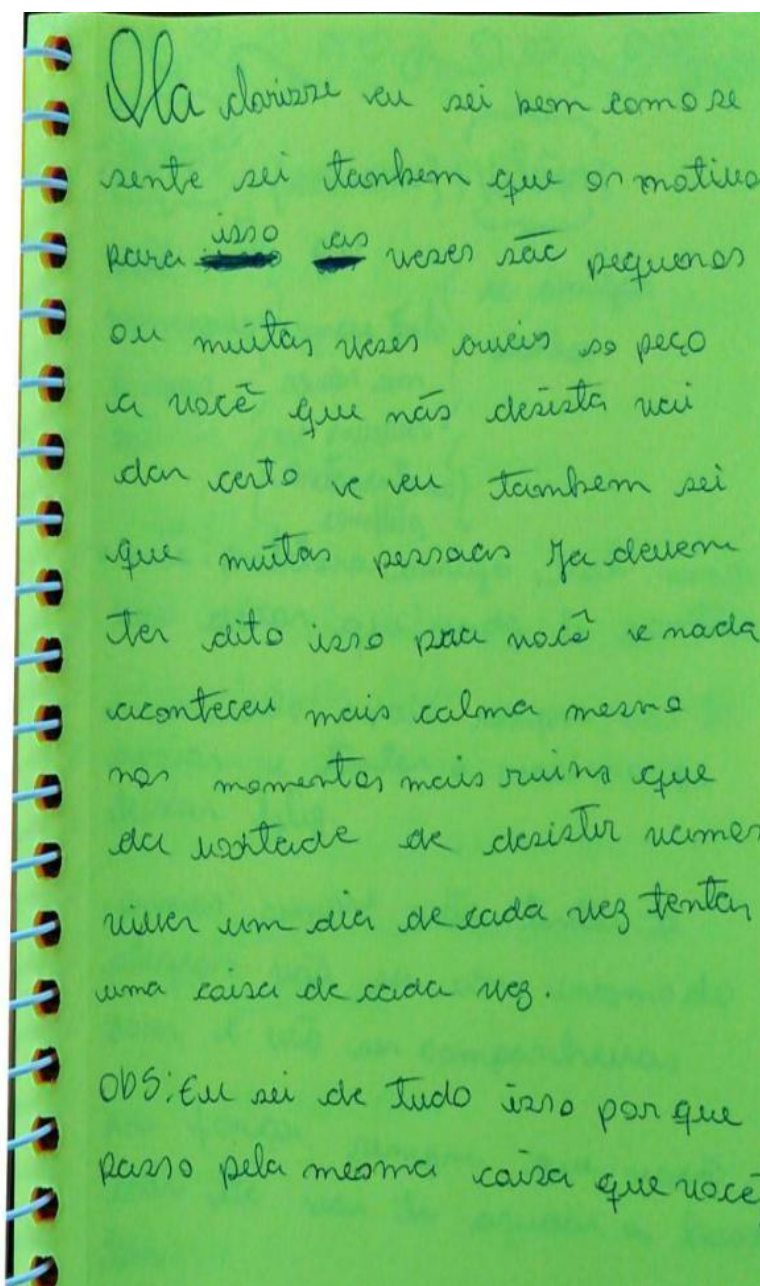 Ola clarisse eu sei bem como se
sente sei tanbem que os motivos
para isso as vezes são pequenos
ou muitas vezes so peço
a você que não desista vai
dar certo e eu tambem sei
que muitas pessoas ja devem
ter dito isso paa você e nada
aconteceu mais calma mesmo
nos momentos mais ruins que
da vontade de desistir vamos
viver um dia de cada vez tentar
uma coisa de cada vez.
OBS: Eu sei de tudo isso por que
passo pela mesma coisa que você